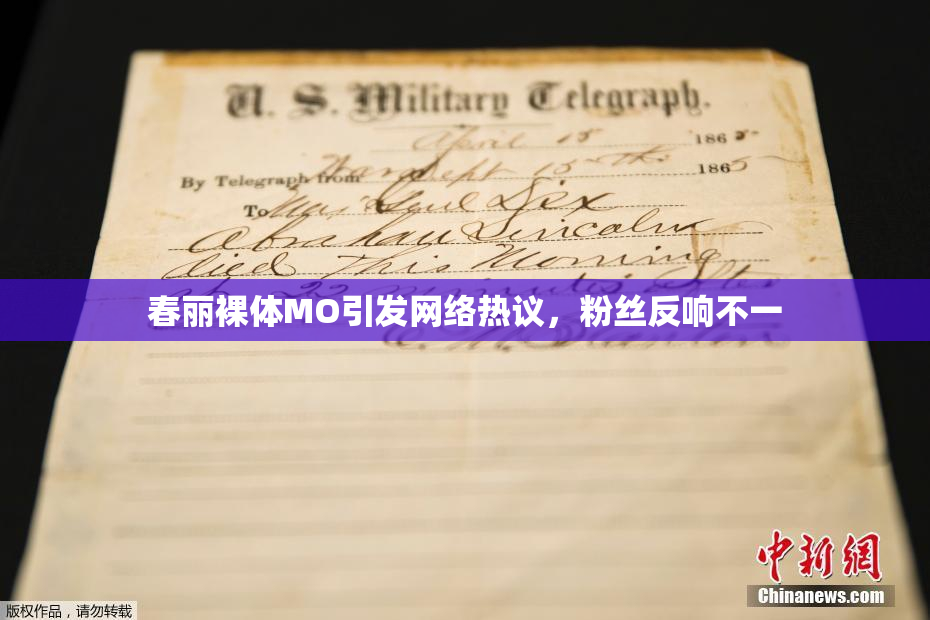 U. S. Military Telegraph.
April 15 1865
By Telegraph from War Dept 15th 1865
To Maj Genl Dix
Abraham Lincoln
died This Morning
at 22 minutes after
春丽裸体MO引发网络热议，粉丝反响不一
E. M. Stanton
中新网
Chinanews.com
版权作品，请勿转载